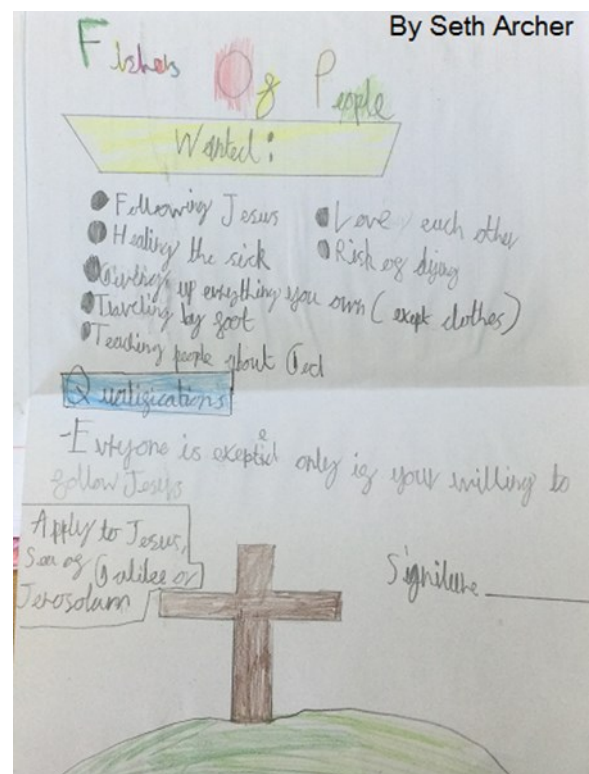 By Seth Archer
Fishers Of People
Wanted:
Following Jesus
Healing the sick
Giving up everything you own (exept clothes)
Traveling by foot
Teaching people about God
Love each other
Risk of dying
Qualifications
-Evryone is exepted only if your willing to
follow Jesus
Apply to Jesus,
Sea of Galilee or
Jerosolam
Signiture